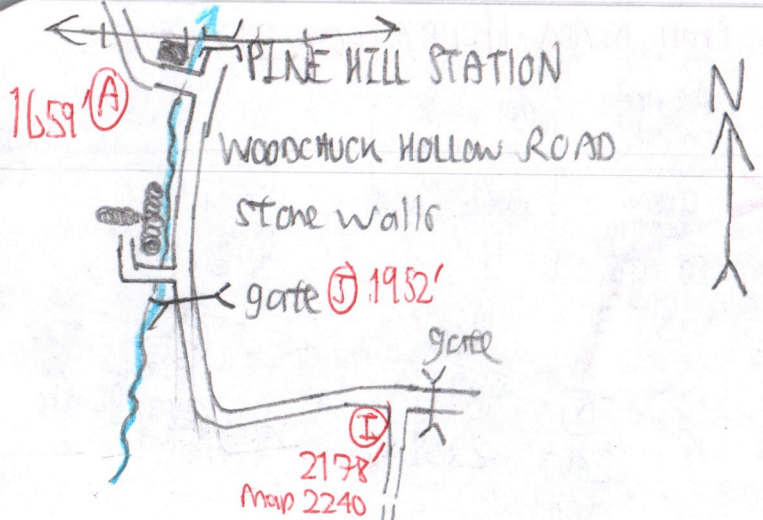 PINE HILL STATION
N
1659' A
WOODCHUCK HOLLOW ROAD
Stone walls
gate J 1952'
gate
I
2178'
Map 2240